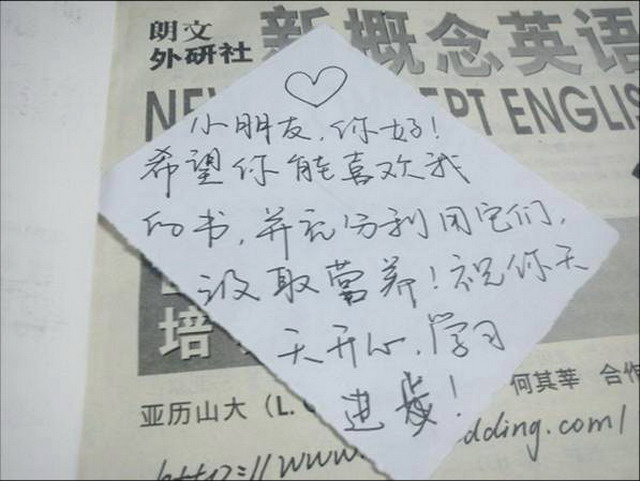 朗文
外研社
新概念英语
NE
EPT ENGLIS
小朋友,你好!
希望你能喜欢我
的书,并充分利用它们,
汲取营养!祝你天
天开心,学习
进步!
培
亚历山大(L.
何其莘 合作
http://www.
dding.com/